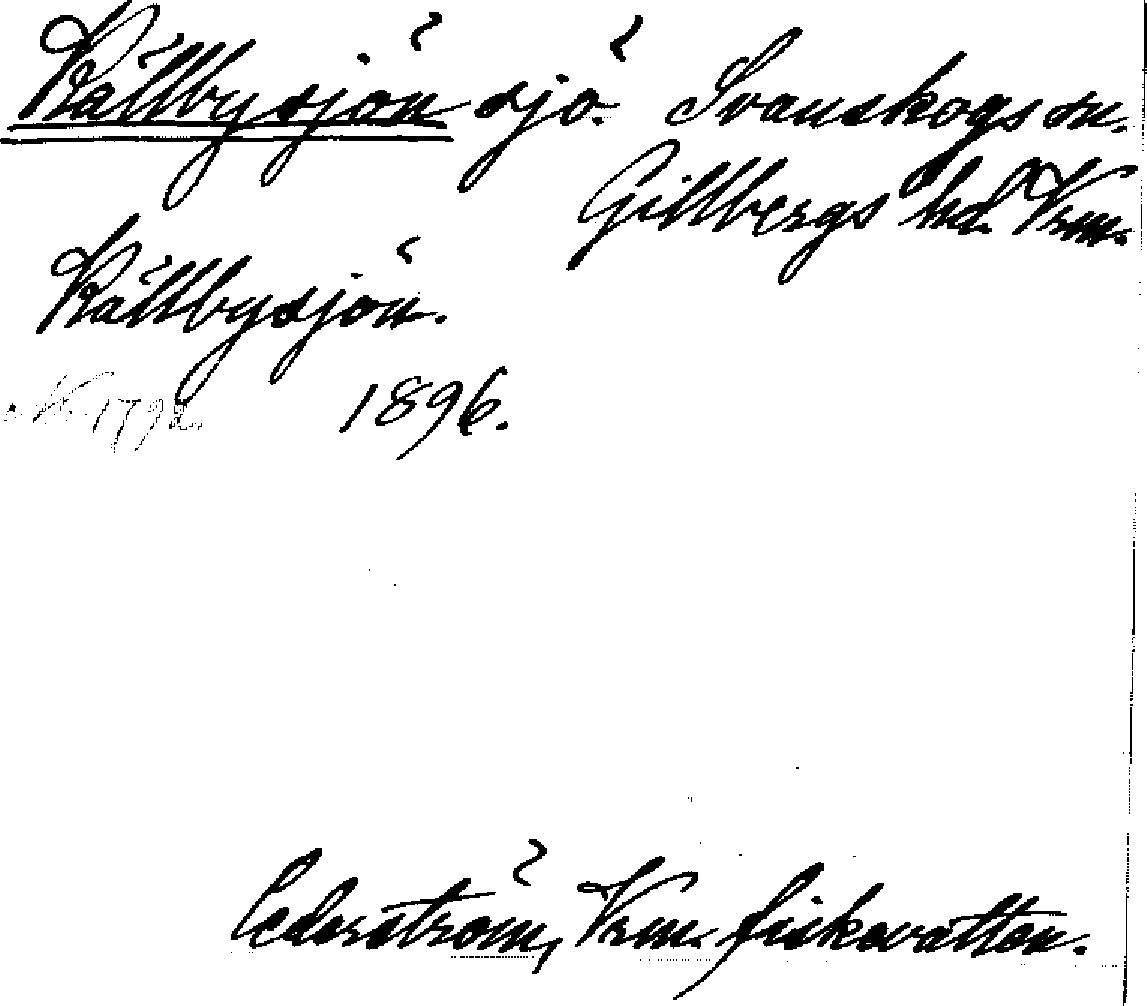 Källbysjön sjö. Svanskogs sn.
Gillbergs hd. Vrm.
Källbysjön.
1896.
Cederström, Vrm. fiskevatten.